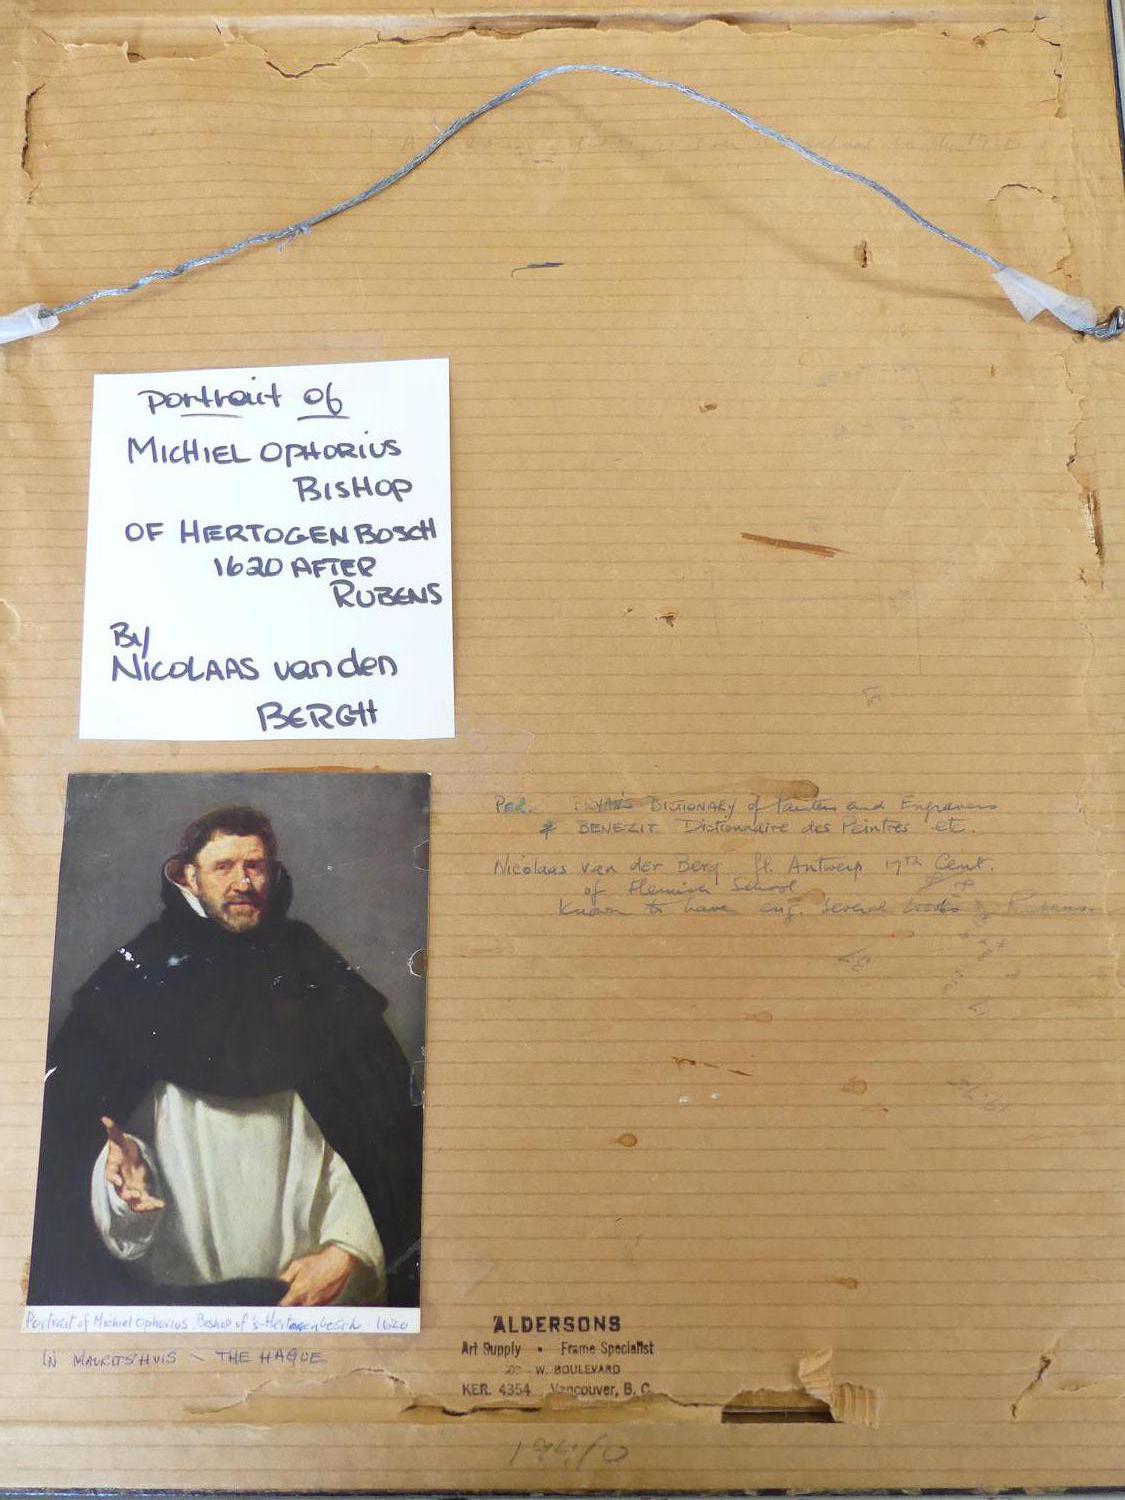 Portrait of
MICHIEL OPHORIUS
BISHOP
OF HERTOGENBOSCH
1620 AFTER
RUBENS
By
NICOLAAS van den
BERGH
Per. BRYAN'S DICTIONARY of Painters and Engravers
& BENEZIT Dictionnaire des Peintres etc.
Nicolaas van der Berg fl. Antwerp 17th Cent.
of Flemish School
Known to have eng. several works of Rubens.
Portrait of Michiel Ophovius, Bishop of 's-Hertogenbosch 1620
IN MAURITSHUIS - THE HAGUE
ALDERSONS
Art Supply • Frame Specialist
W. BOULEVARD
KER. 4354 Vancouver, B. C.